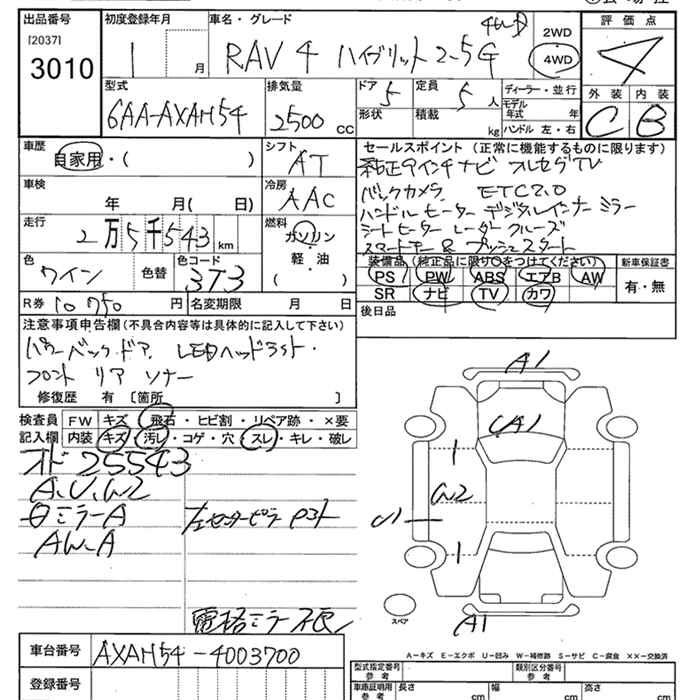 出品番号
[2037]
3010
初度登録年月
1 月
車名・グレード
RAV4 ハイブリット 2.5G
4WD
2WD
4WD
評価点
4
外装 内装
C B
型式
6AA-AXAH54
排気量
2500 cc
ドア 5
形状
定員 5 人
積載 kg
ディーラー・並行
モデル年式 年
ハンドル 左・右
車歴
自家用・( )
シフト
AT
車検
年 月( 日)
冷房
AAC
走行
2万5千543 km
燃料
ガソリン
軽・油
( ・ )
色
ワイン
色替
色コード
3T3
R券 10750 円
名変期限 月 日
セールスポイント (正常に機能するものに限ります)
純正9インチナビ フルセグTV
バックカメラ ETC2.0
ハンドルヒーター デジタルインナーミラー
シートヒーター レーダークルーズ
スマートキー & プッシュスタート
装備品(純正品に限り○をつけてください)
PS PW ABS エアB AW
SR ナビ TV カワ
新車保証書
有・無
後日品
注意事項申告欄(不具合内容等は具体的に記入して下さい)
パワーバックドア LEDヘッドライト・
フロント リア ソナー
修復歴 有 [箇所 ]
検査員
記入欄
FW キズ・飛石・ヒビ割・リペア跡・×要
内装 キズ・汚レ・コゲ・穴・スレ・キレ・破レ
オド 25543
A.U.W2
ミラーA
AW-A
センターピラー
電格ミラー
A1
UA1
1
W2
U1
1
A1
スペア
A-キズ E-エクボ U-凹み W-補修跡 S-サビ C-腐食 ××-交換済
車台番号
AXAH54-4003700
登録番号
型式指定番号
参考
類別区分番号
参考
車庫証明用
参考
長さ cm
幅 cm
高さ cm